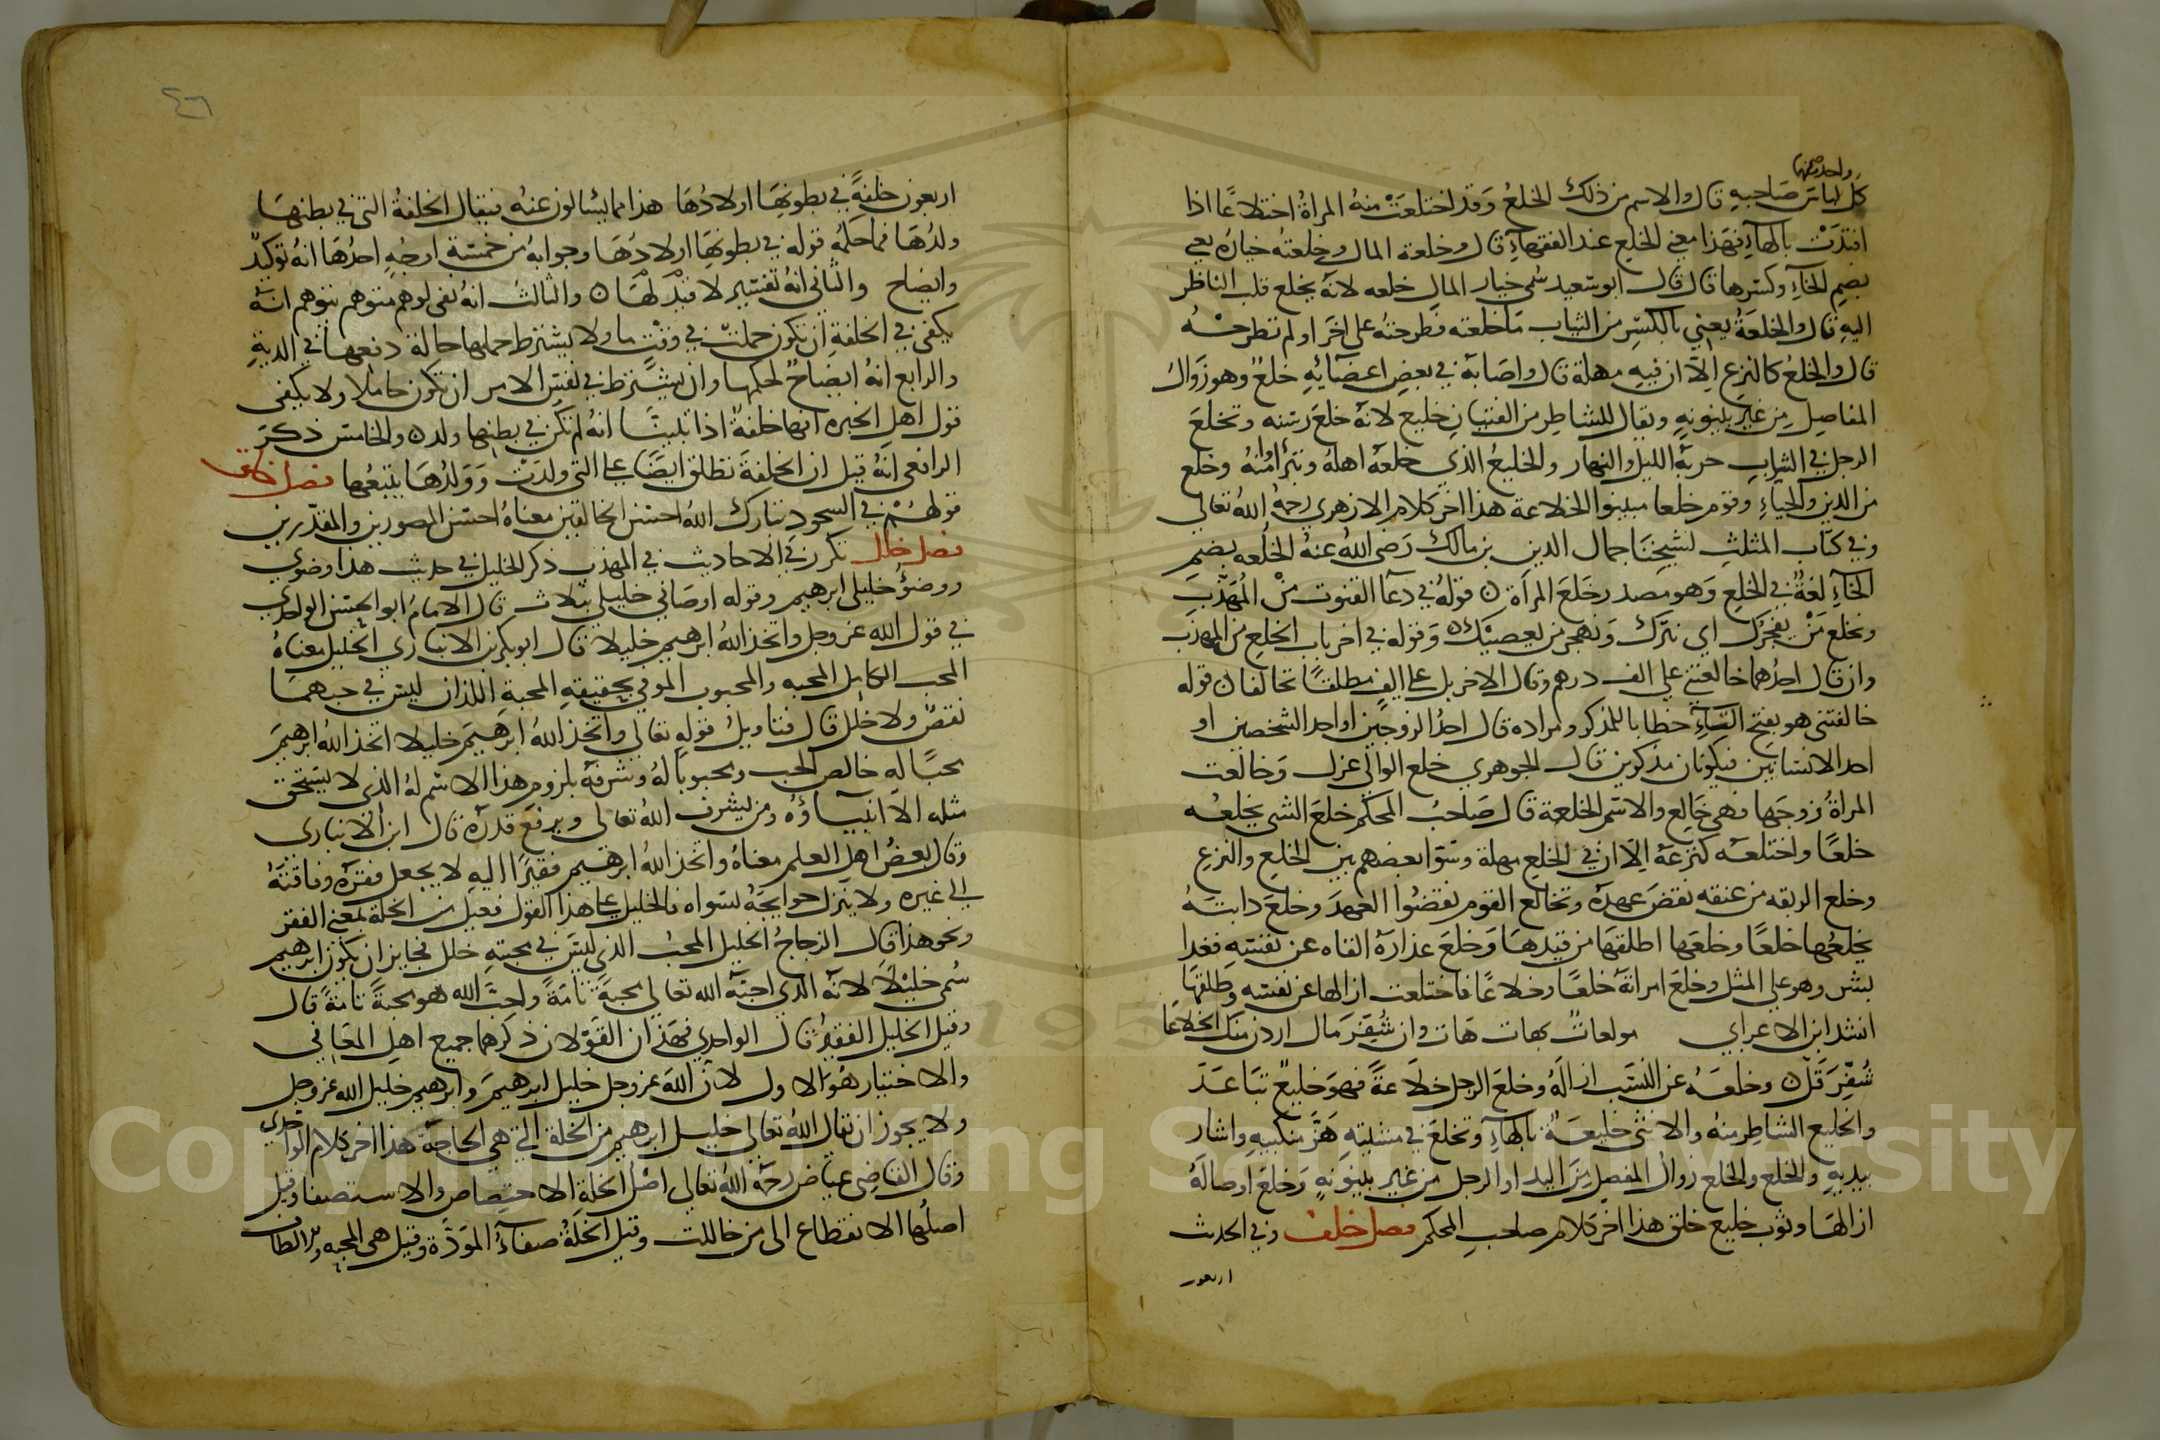 واحد منهما
كل لباس صاحبه قال والاسم من ذلك الخلع وقد اختلعت منه المراة اختلاعا اذا
افتدت بالهاء فهذا معنى الخلع عند الفقهاء قال وخلعة المال وخلعته خياره يعني
بضم الخاء وكسرها قال قال ابو سعيد سمي خيار المال خلعه لانه يخلع قلب الناظر
اليه قال والخلعة يعني بالكسر من الثياب ما خلعته فطرحته على اخر او لم تطرحه
قال والخلع كالنزع الا ان فيه مهلة قال واصابه في بعض اعضائه خلع وهو زوال
المفاصل من غير بينونه ويقال للشاطر من الفتيان خليع لانه خلع رسنه وتخلع
الرجل في الشراب شربه الليل والنهار والخليع الذي خلعه اهله وتبرأوا منه وخلع
من الدين والحياء وقوم خلعا مبينوا الخلاعة هذا اخر كلام الازهري رحمه الله تعالى
وفي كتاب المثلث لشيخنا جمال الدين بن مالك رضي الله عنه الخلعه بضم
الخاء لغة في الخلع وهو مصدر خلع المراة ن قوله في دعا القنوت من المهذب
ونخلع من يفجرك اي نترك ونهجر من يعصيك ن وقوله في اخر باب الخلع من المهذب
وان قال احدهما خالعتني على الف درهم وقال الاخر بل على الف مطلقا تحالفا ن قوله
خالعتني هو بفتح التاء خطابا للمذكر ومراده قال احد الزوجين او احد الشخصين او
احد الانسانين فيكونان مذكورين قال الجوهري خلع الوالي عزل وخالعت
المراة زوجها فهي خالع والاسم الخلعة قال صاحب المحكم خلع الشي يخلعه
خلعا واختلعه كنزعه الا ان في الخلع مهلة وسوا بعضهم بين الخلع والنزع
وخلع الربقه من عنقه نقض عهده وتخالع القوم نقضوا العهد وخلع دابته
يخلعها خلعا وخلعها اطلقها من قيدها وخلع عذاره القاه عن نفسه فعدا
بشر وهو على المثل وخلع امراته خلعا وخلاعا فاختلعت ازالها عن نفسه وطلقها
انشد ابن الاعرابي مولعات بهات هات وان شفر مال اردن منك الخلاعا
شفر قل ن وخلعه عن النسب ازاله وخلع الرجل خلاعة فهو خليع تباعد
والخليع الشاطر منه والانثى خليعة بالهاء وتخلع في مشيته هز منكبيه واشار
بيديه والخلع والخلع زوال المفصل من اليد او الرجل من غير بينونه وخلع اوصاله
ازالها وثوب خليع خلق هذا اخر كلام صاحب المحكم فصل خلف وفي الحديث
اربعون
اربعون خلفة في بطونها اولادها هذا مما يسالون عنه فيقال الخلفة التي في بطنها
ولدها فما حكمه قوله في بطونها اولادها وجوابه من خمسة اوجه احدها انه توكيد
وايضاح والثاني انه تفسير لا قيد لها ن والثالث انه نفى لوهم متوهم يتوهم انه
يكفي في الخلفة ان تكون حملت في وقت ما ولا يشترط حملها حالة دفعها في الدية
والرابع انه ايضاح لحكمها وان يشترط في نفس الامر ان تكون حاملا ولا يكفي
قول اهل الخبره انها خلفة اذا تبينا انه لم تكن في بطنها ولد ن والخامس ذكر
الرافعي انه قيل ان الخلفة تطلق ايضا على التي ولدت وولدها يتبعها فصل خلق
قولهم في السجود تبارك الله احسن الخالقين معناه احسن المصورين والمقدرين
فصل خلل تكرر في الاحاديث في المهذب ذكر الخليل في حديث هذا وضوي
ووضوء خليلي ابرهيم وقوله اوصاني خليلي بثلاث قال الامام ابو الحسن الواحدي
في قول الله عز وجل واتخذ الله ابرهيم خليلا قال ابو بكر بن الانباري الخليل معناه
المحب الكامل المحبه والمحبوب الموفي بحقيقة المحبة اللذان ليس في حبهما
نقص ولا خلل قال فتاويل قوله تعالى واتخذ الله ابرهيم خليلا اتخذ الله ابرهيم
محبا له خالص الحب ومحبوبا له وشرفه بلزوم هذا الاسم له الذي لا يستحق
مثله الا انبياؤه ومن يشرف الله تعالى ويرفع قدره قال ابن الانباري
وقال بعض اهل العلم معناه واتخذ الله ابرهيم فقيرا اليه لا يجعل فقره وفاقته
الى غيره ولا ينزل حوايجه بسواه فالخليل على هذا القول فعيل من الخلة بمعنى الفقر
ونحو هذا قال الزجاج الخليل المحب الذي ليس في محبته خلل فجايز ان يكون ابرهيم
سمي خليلا لانه الذي احبه الله تعالى محبة تامة واحب الله هو محبة تامة قال
وقيل الخليل الفقير قال الواحدي فهذان القولان ذكرهما جميع اهل المعاني
والاختيار هو الاول لان الله عز وجل خليل ابرهيم وابرهيم خليل الله عز وجل
ولا يجوز ان يقال الله تعالى خليل ابرهيم من الخلة التي هي الحاجة هذا اخر كلام الواحدي
وقال القاضي عياض رحمه الله تعالى اصل الخلة الاختصاص والاستصفا وقيل
اصلها الانقطاع الى من خاللت وقيل الخلة صفاء المودة وقيل هي المحبه والالطاف
Copyright © King Saud University
195